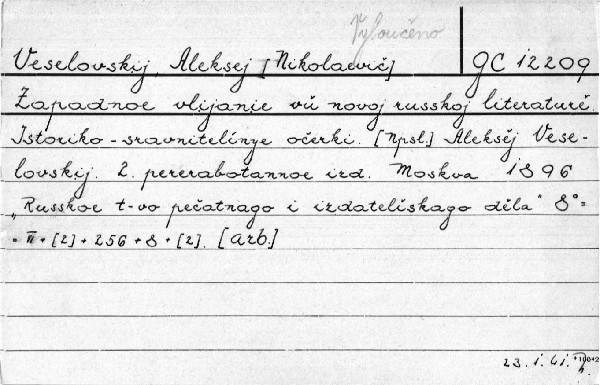 Vyloučeno
Veselovskij, Aleksej [Nikolaevič] GC 12209
Zapadnoe vlijanie vŭ novoj russkoj literaturě.
Istoriko-sravnitelĭnye očerki. [Npsl.] Aleksěj Vese-
lovskij. 2. pererabotannoe izd. Moskva 1896
„Russkoe t-vo pečatnago i izdatelĭskago děla" 8°=
= II + [2] + 256 + 8 + [2]. [arb.]
23.1.61.